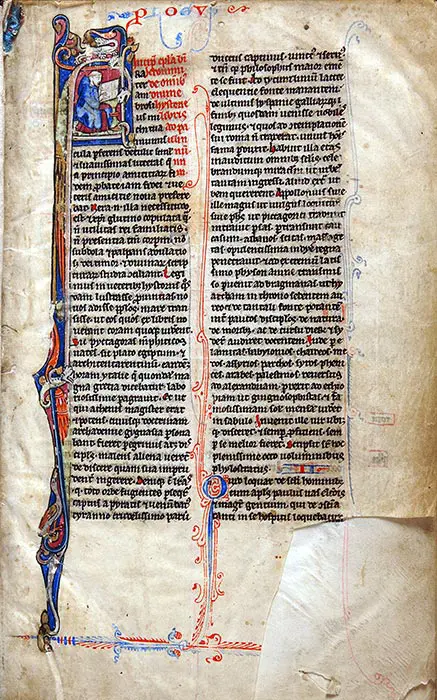 cula pferens detulit simul
⁊ suauissimas litteras q̄
a principio amicitiar̄ fi
dem ⁊ ue
teris amicitie noua prefere
bāt. Uera ⁊
est ⁊ xpi glutino copulata q̄m
n̄ utilitas rei familiaris
n̄ presentia tm̄ corpoꝝ nō
subdola ⁊ palpans adulatio
s dei timor ⁊ diuinaꝝ scrip
turaꝝ studia conciliant. Legi
mus in ueteribꝫ hystoriis q̄s
dam lustrasse prouincias no
uos adisse pplos maria tran
sisse ut eos quos ex libris no
uerant coram quoqꝫ uiderent.
Sic pytagoras memphiticos
uates. sic plato egyptum ⁊
architam tarentinum eandē
oram ytalie q̄ quondā ma
gna grecia dicebatur labo
riosissime peragrauit. Et ut
qui athenis magister erat
⁊ potens cuiusqꝫ doctrinam
achademie gignasia psona
bant fieret pegrinus atqꝫ dis
cipls malens aliena uerecū
de discere quam sua impu
denter ingerere. Deniqꝫ cū litt̄as
q̄ toto orbe fugientes pseqt̄ur
captus a pyratis ⁊ uenūdat
tyranno crudelissimo paruit
ductus captiuus uinctus ⁊ seruus
⁊ tm̄ qꝫ philosophus maior emen
te se fuit. Ad tytum liuium lacteo
eloquentie fonte manantem
de ultimis hyspanie galliarꝫ qꝫ
finibꝫ quosdam uenisse nobiles
legimus ⁊ quos ad templationē
sui roma n̄ traxerat uniꝰ hōis
fama pduxit. Habuit illa etas
inauditum omnibꝫ sclis cele
brandumqꝫ miraculum ut urbem
tantam ingressi aliud extra ur
bem quererent. Appollonius siue
ille magus ut uulgus loquitur
siue phs ut pitagorici tradunt
intrauit psas. ptransiuit cau
casum. albanos. scitas. massage
tas. opulentissima indye regna
penetrauit ⁊ ad extremū latis
simo physon amne transmisso
puenit ad bragmanas ut hy
archam in throno sedentem au
reo ⁊ de tantali fonte potantem
int̄ paucos discipulos de natura
de moribꝫ. ac de cursu dierū ⁊ syde
rū audiret docentem. Inde p e
lamitas babylonios chaldeos me
dos. assyrios. parthos. syros. pheni
ces. arabes. palestinos. reuersus
ad alexandriam. prexit ad ethio
piam ut gingnosophistas ⁊ fa
mosissimam sol mensā uidet
in sabulo. Inuenit ille uir ubiqꝫ
qd disceret ⁊ semp proficiens semp
se melior fieret. Scripsit sup hoc
plenissime octo uoluminibus
phylostratus.
Quid loquar de scli hominibꝫ
cum apls paulus uas electiōis
⁊ magr̄ gentium. qui de ꝯsciā
tanti in se hospitis loquebatur